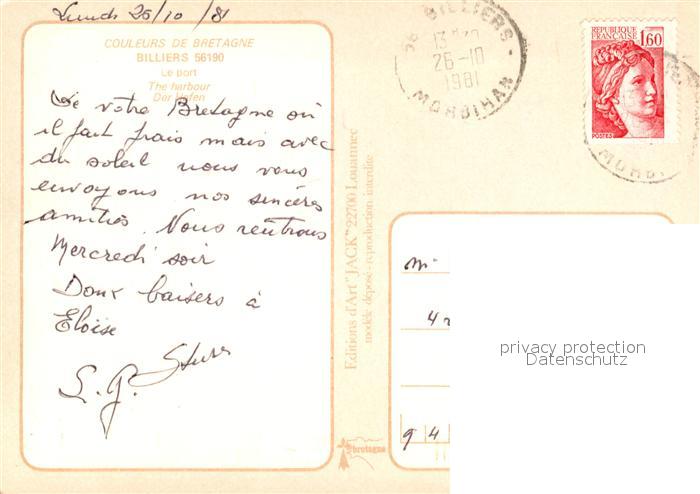 Lundi 26/10/81
COULEURS DE BRETAGNE
BILLIERS 56190
Le port
The harbour
Der Hafen
De votre Bretagne où
il fait frais mais avec
du soleil nous vous
envoyons nos sincères
amitiés. Nous rentrons
Mercredi soir
Doux baisers à
Eloïse
S. G.
56 BILLIERS
26-10
1981
MORBIHAN
REPUBLIQUE
FRANÇAISE
1,60
POSTES
MORBI
Editions d'Art "JACK" 22700 Louannec
modèle déposé - reproduction interdite
m.
4
9 4
bretagne
privacy protection
Datenschutz